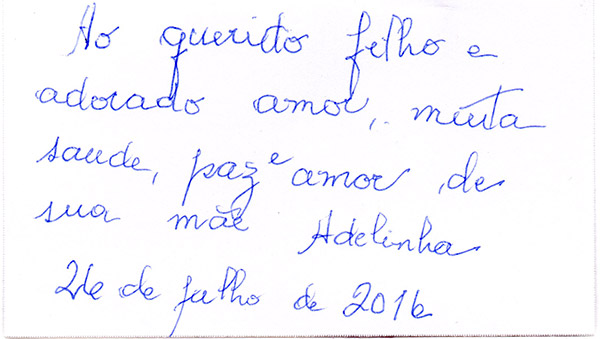 Ao querido filho e
adorado amor, muita
saude, paz e amor de
sua mãe Adelinha
26 de julho de 2016